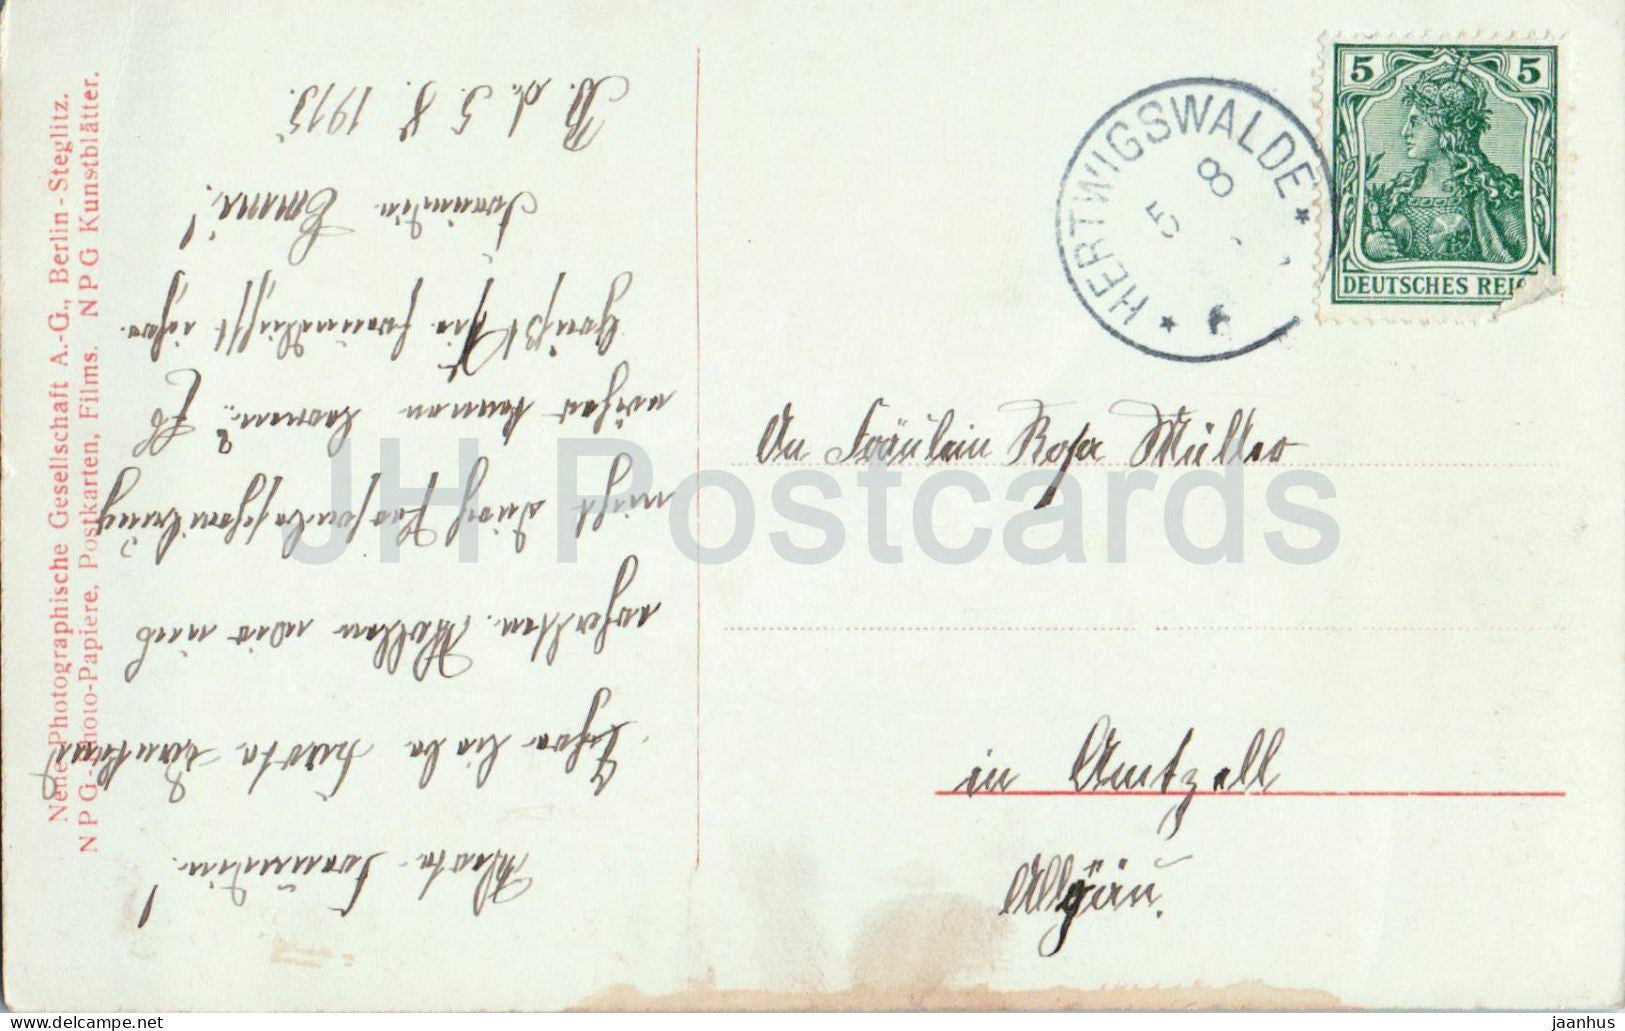 Neue Photographische Gesellschaft A.-G., Berlin-Steglitz.
NPG-Photo-Papiere, Postkarten, Films. NPG Kunstblätter.
Werte Freundin!
Ihre liebe Karte dankend
erhalten. Wollen wir uns
nicht durch
näher kennen lernen? Es
Grüßt Sie freundlichst Ihre
Freundin Emma!
B. d. 5. 8. 1915.
HERTWIGSWALDE
5 8
5 5
DEUTSCHES REICH
An Fräulein Rosa Müller
in Amtzell
Allgäu.
JH Postcards
delcampe.net
jaanhus